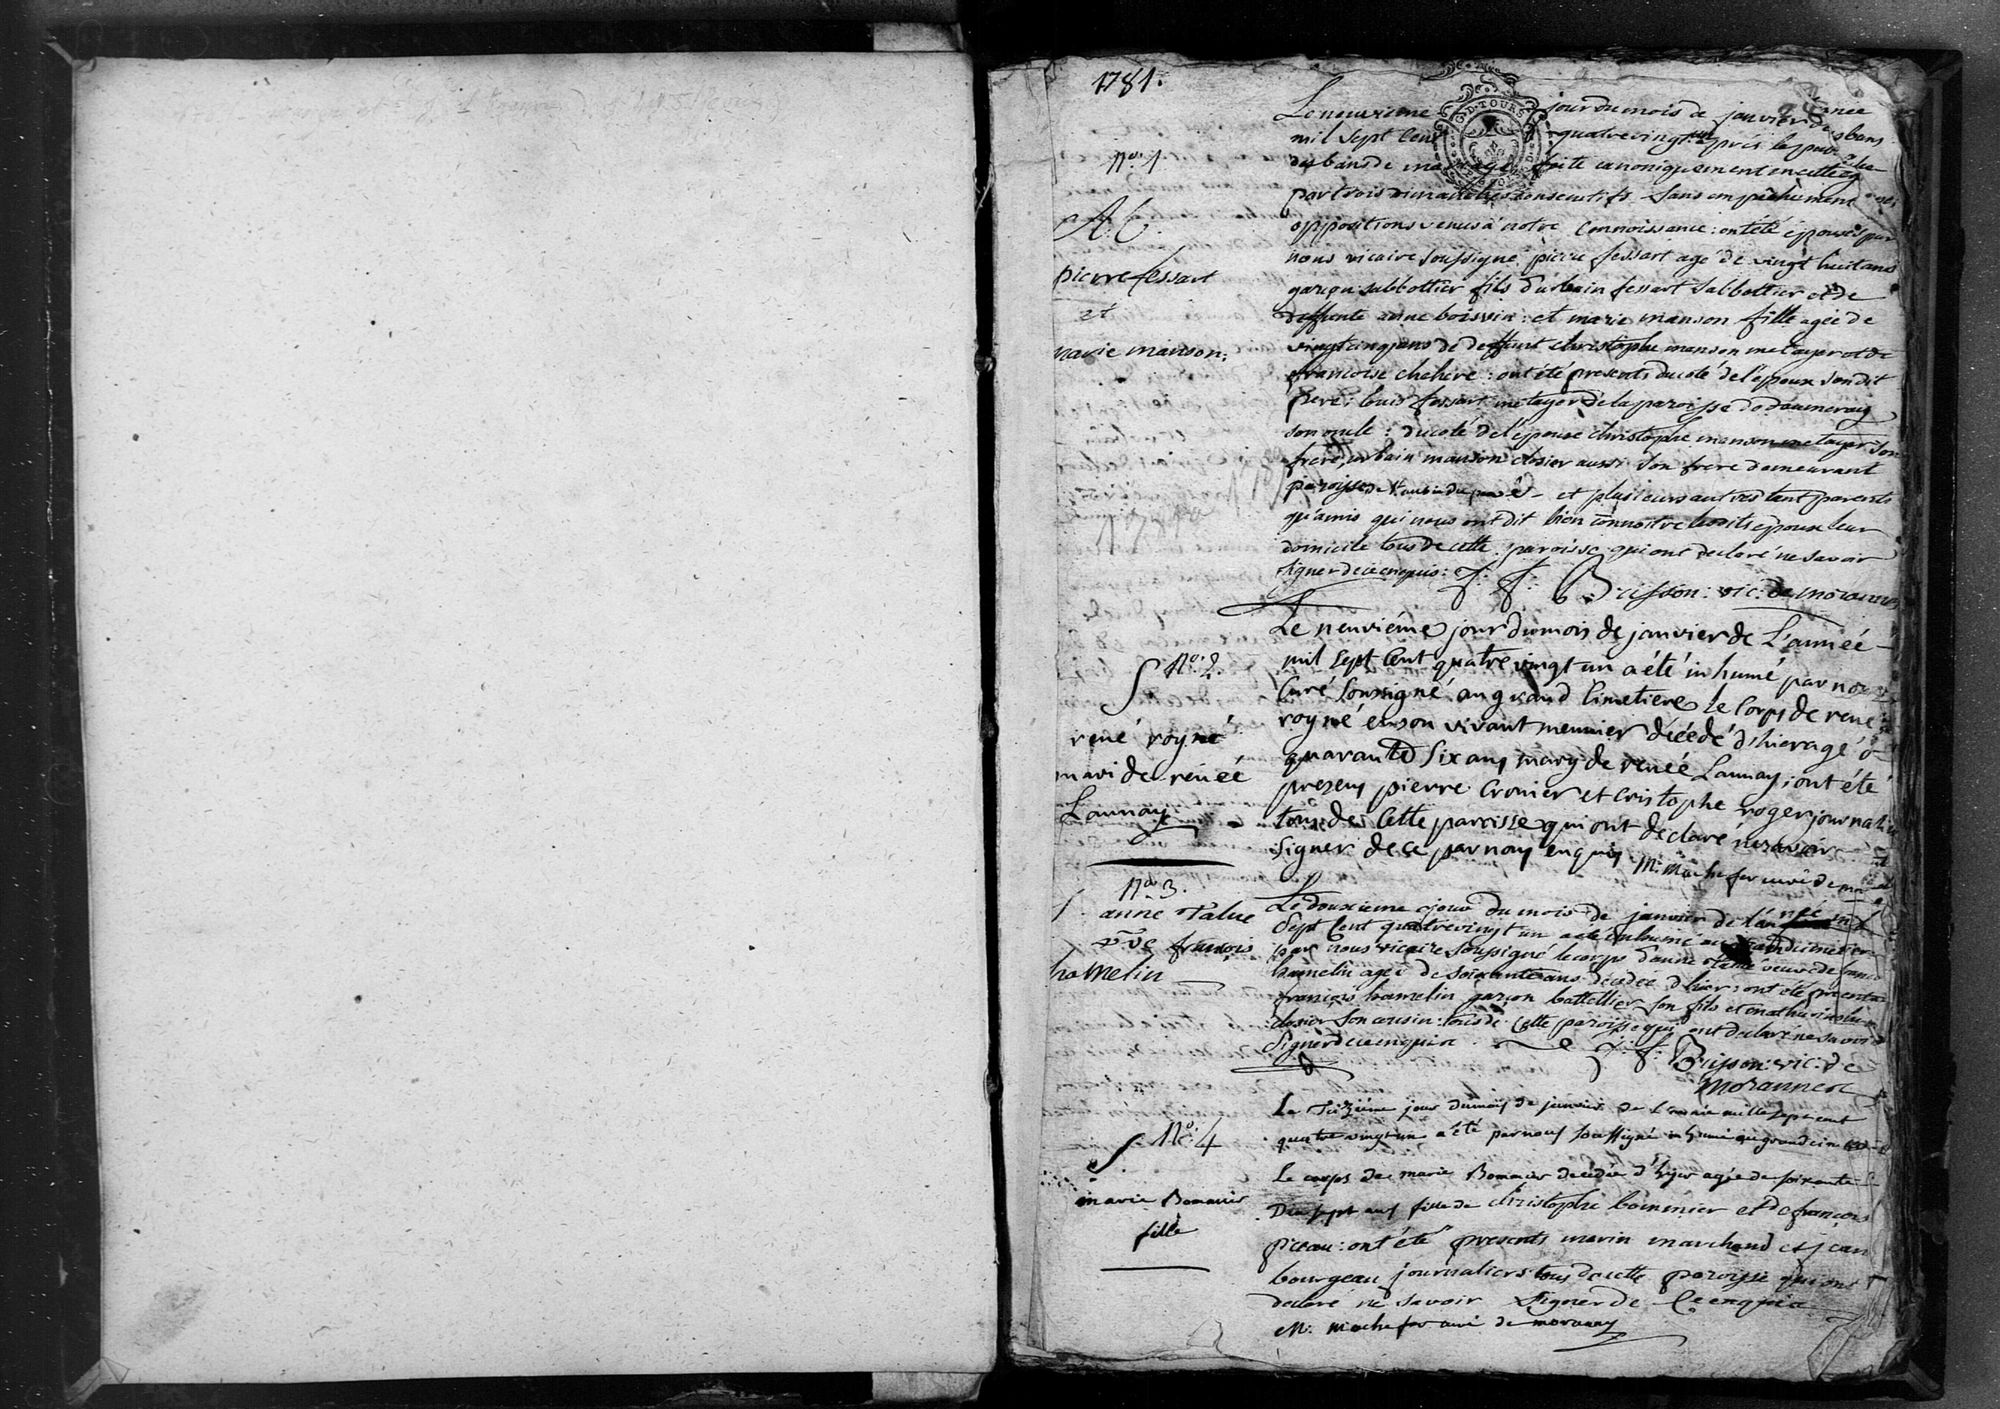 1781.
G.D. TOURS
N.o 1
A. C.
pierre fessart
et
marie manson.
Le neuvieme jour du mois de janvier
mil sept Cent quatre vingt un aprés les
des bans de mariage faite canoniquement en cette
par trois dimanches consecutifs. sans empêchement
oppositions venus à notre Connoissance: ont été épousés par
nous vicaire soussigné. pierre fessart agé de vingt huit ans
garçon sabbottier fils d'urbain fessart Sabbottier et de
deffunte anne boissin: et marie manson fille agée de
vingt cinq ans de deffunt christophe manson metayer et de
françoise chehere: ont été presents du coté de l'epoux son dit
pere: louis fessart metayer de la paroisse de daumeray
son oncle: du coté de l'épouse christophe manson metayer son
frere, urbain manson closier aussi son frere demeurant
paroisse de St aubin du pavé - et plusieurs autres tant parents
qu'amis qui nous ont dit bien connoitre lesdits epoux leur
domicile tous de cette paroisse qui ont declaré ne savoir
signer de ce enquis: J: F: Buisson: vic: de morannes
N.o 2.
S
rené royné
mari de renéé
Launay
Le neuvieme jour du mois de janvier de L'année
mil sept Cent quatre vingt un a été inhumé par nous
Curé Soussigné au grand Cimetiere le Corps de rené
royné en son vivant meunier décédé d'hier agé d
quarante Six ans mary de renéé Launay; ont été
presens pierre Cronier et Cristophe roger journalie
tous de Cette parroisse qui ont declaré ne savoir
signer de ce par nous enquis M. Machefer curé de
N.o 3.
S. anne
v.ve françois
hamelin
Le douzieme jour du mois de janvier de l'année mil
Sept Cent quatre vingt un a été inhumé au grand cimetier
par nous vicaire soussigné le corps d'anne veuve de
hamelin agée de soixante ans décédée d'hier: ont été presents
françois hamelin garçon battellier son fils et mathurin
closier son cousin: tous de Cette paroisse qui ont declaré ne savoir
Signer de ce enquis J: F: Buisson: vic: de
morannes
N.o 4
S.
marie Bommier
fille
Le Seizième jour du mois de janvier de L'année mille sept cent
quatre vingt un a été par nous soussigné inhumé au grand
Le corps de marie Bommier décédée d'hyer agée de soixante
Dix sept ans fille de christophe bommier et de françoise
piceau: ont été presents marin marchand et jean
bourgeau journaliers tous de cette paroisse qui ont
declaré ne savoir signer de Ce enquis
M. Machefer curé de morannes